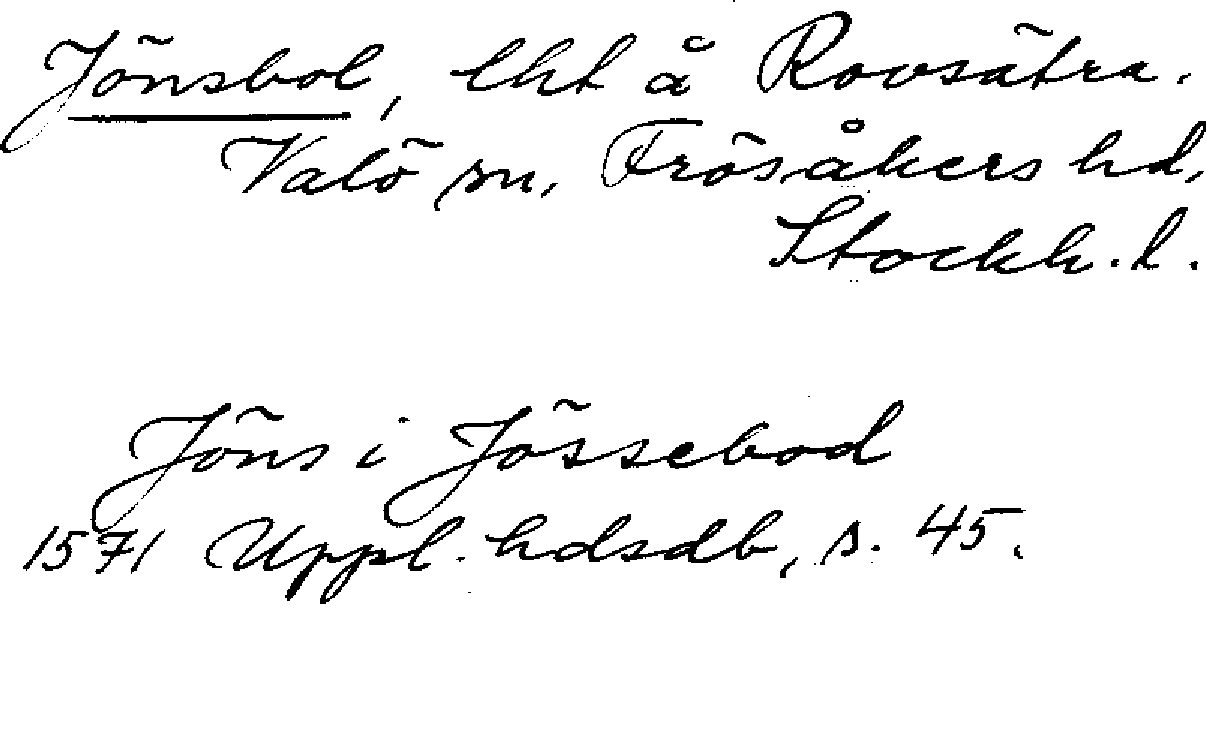 Jönsbol, lht å Rovsätra.
Valö sn, Frösåkers hd,
Stockh. l.
Jöns i Jössebod
1571 Uppl. hdsdb, s. 45.